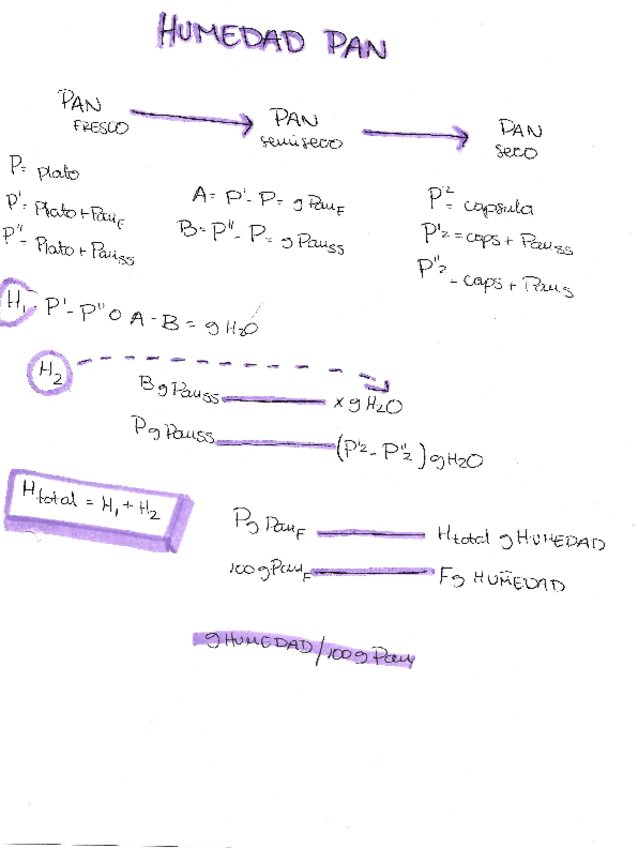 HUMEDAD PAN
PAN FRESCO → PAN semiseco → PAN seco
P= plato
P'= Plato + Pan_F
P''= Plato + Pan_ss
A= P'- P= g Pan_F
B= P''- P= g Pan_ss
P_2= capsula
P'_2 = caps + Pan_ss
P''_2 = caps + Pan_s
H_1 P'- P'' o A - B = g H_2O
H_2
B g Pan_ss — x g H_2O
P g Pan_ss — (P'_2 - P''_2) g H_2O
H_total = H_1 + H_2
P g Pan_F — H_total g HUMEDAD
100 g Pan_F — F g HUMEDAD
g HUMEDAD/100 g Pan